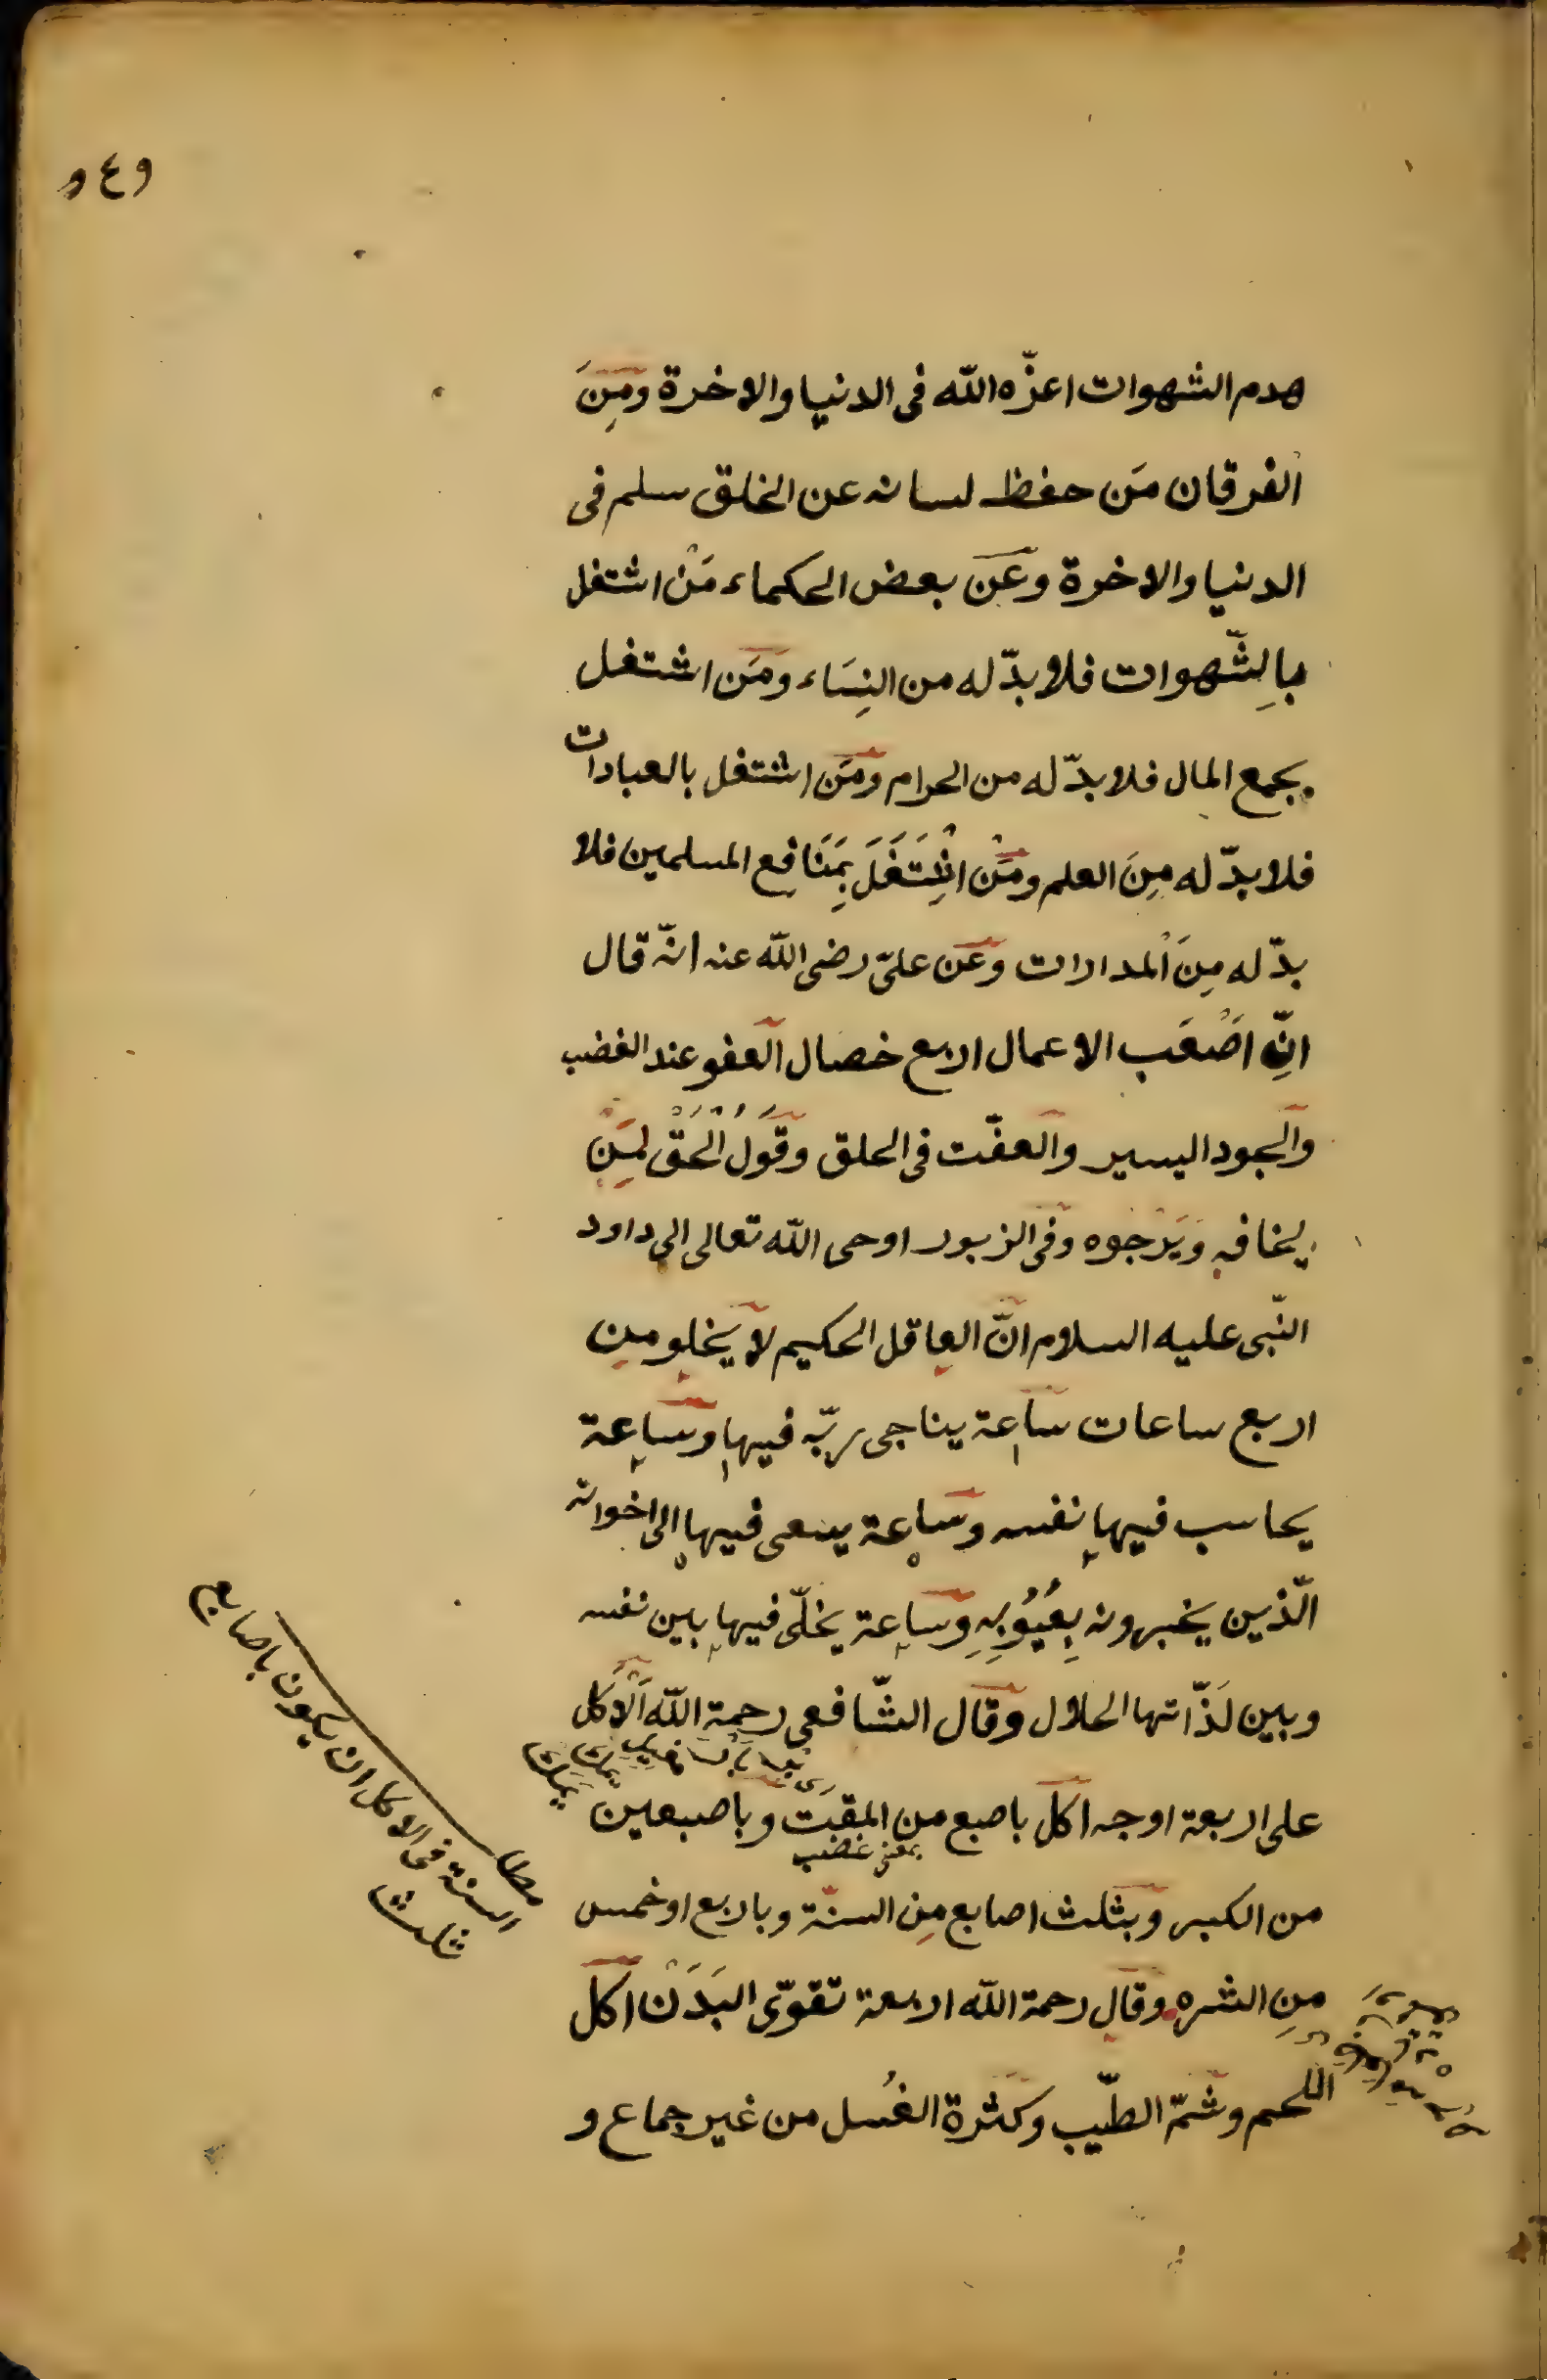 هدم الشهوات اعزّه الله فى الدنيا والاخرة ومِنَ
الفرقان مَن حفظ لسانه عن الخلق سلم فى
الدنيا والاخرة وعَن بعض الحكماء مَنْ اشتغل
بالِشّهوات فلا بدّ له من النِسَاء ومَن اشتغل
بجمع المال فلا بدّ له من الحرام ومَن اشتغل بالعبادات
فلا بدّ له مِنَ العلم ومَنْ اشْتَغَلَ بِمَنَافع المسلمين فلا
بدّ له مِنَ الْمدارات وعَن علىّ رضى الله عنه انّه قال
انِّ اَصْعَب الاعمال اربع خصال العفو عند الغضب
والجود اليسير والعفّت فى الحلق وقَوْلُ الْحَقْ لِمَنْ
يخافه ويَرْجوه وفى الزبور اوحى الله تعالى الى داود
النّبى عليه السلام انّ العاقل الحكيم لا يخلو مِن
اربع ساعات ساعة يناجى ربّه فيها وساعة
يحاسب فيها نفسه وساعة يسعى فيها الى اخوانه
الّذين يخبرونه بِعُيُوُبِهِ وساعة يخلّى فيها بين نفسه
وبين لَذّاتها الحلال وقال الشّافعى رحمة الله اَلْاَكل
على اربعة اوجه اكل باصبع من المقت وباصبعين
بمعنى غضب
من الكبر وبثلث اصابع مِن السنّة وباربع او خمس
مِن الشره وقال رحمة الله اربعة تقوّى البَدَنْ اكل
اللحم وشمّ الطّيب وكثرة الغُسل من غير جماع و
السنة فى الاكل ان يكون باصابع
ثلث